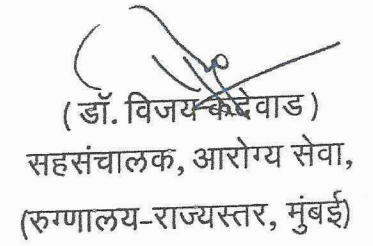 ( डॉ. विजय कंदेवाड )
सहसंचालक, आरोग्य सेवा,
(रुग्णालय-राज्यस्तर, मुंबई)